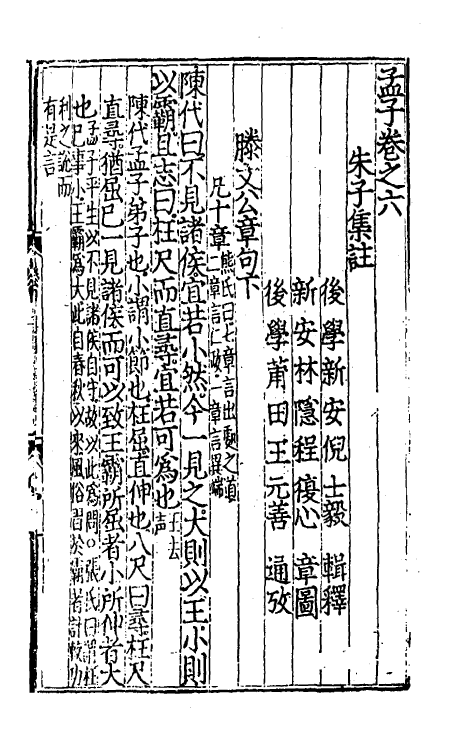 孟子卷之六
朱子集註
後學新安倪士毅輯釋
新安林隱程復心章圖
後學莆田王元善通攷
滕文公章句下
凡十章熊氏曰七章言出處之道
二章言仁政一章言異端
陳代曰不見諸侯宜若小然今一見之大則以王小則
以霸且志曰枉尺而直尋宜若可爲也王去聲
陳代孟子弟子也小謂小節也枉屈直伸也八尺曰尋枉尺
直尋猶屈己一見諸侯而可以致王霸所屈者小所伸者大
也孟子平生以不見諸侯自守故以此爲問○張氏曰謂枉
己事小王霸爲大此自春秋以來風俗習於霸者計較功
利之說而
有是言